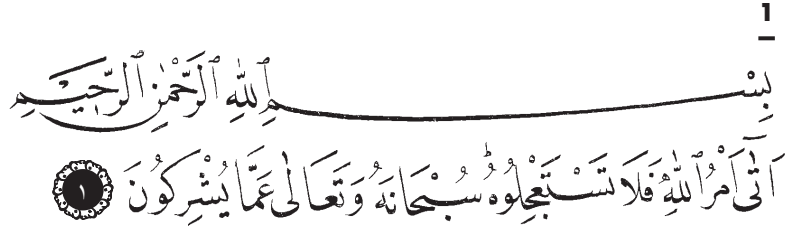 1
بِسْمِ اللّٰهِ الرَّحْمٰنِ الرَّحِيْمِ
اَتٰٓى اَمْرُ اللّٰهِ فَلَا تَسْتَعْجِلُوْهُ ؕ سُبْحَانَهُ وَتَعَالٰى عَمَّا يُشْرِكُوْنَ ﴿١﴾